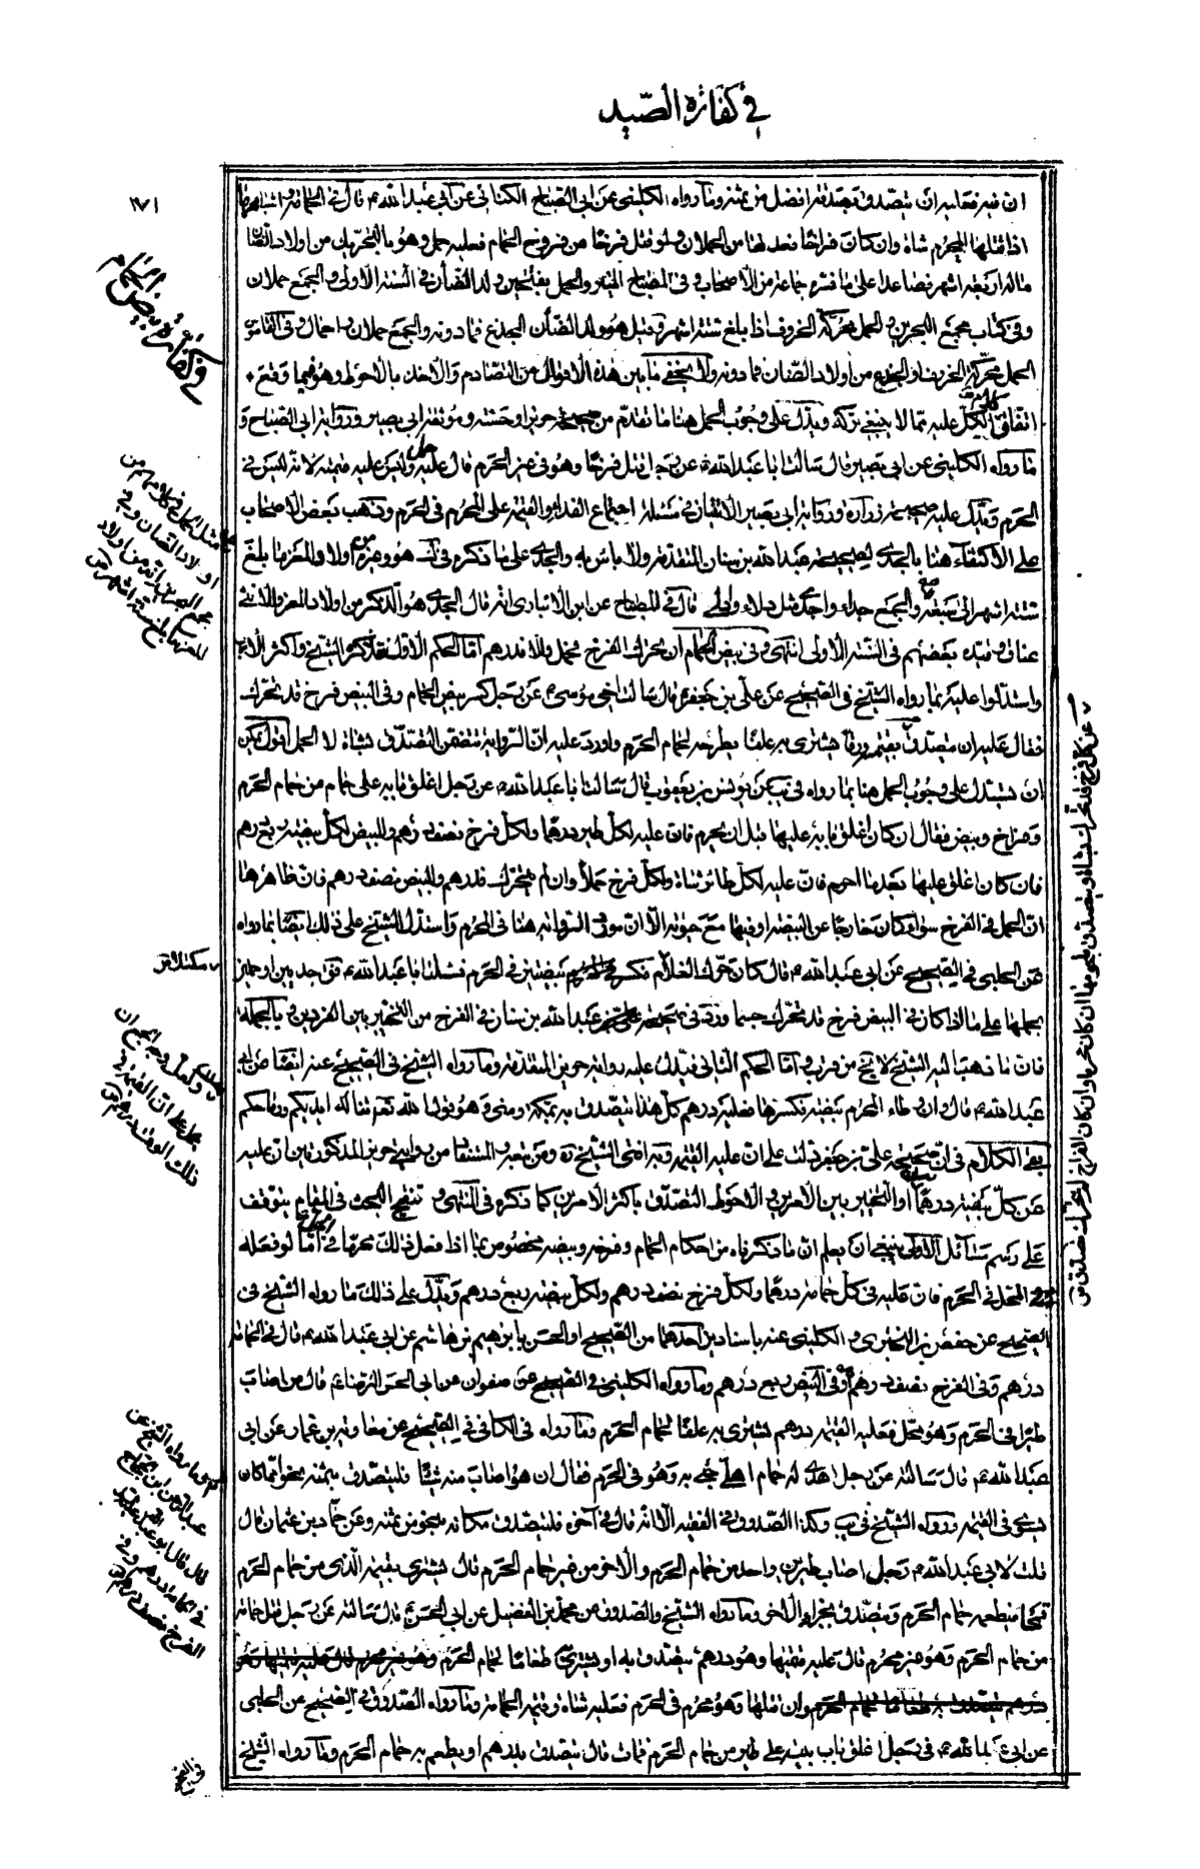 في كفارة الصيد
١٧١
ان فعليه ان يتصدق بصدقة افضل من ثمنه وما رواه الكليني عن ابي الصباح الكناني عن ابي عبد الله ع قال في الحمامة واشباهها
اذا قتلها المحرم شاة وان كان فراخا فعدلها من الحملان ولو قتل فرخا من فروخ الحمام فعليه حمل وهو بالتحريك من اولاد الضان
ماله اربعة اشهر فصاعدا على ما فسره جماعة من الاصحاب وفي المصباح المنير والحمل بفتحتين ولد الضأن في السنة الاولى والجمع حملان
وفي كتاب مجمع البحرين والحمل محركة الخروف اذا بلغ ستة اشهر وقيل هو ولد الضأن الجذع فما دونه والجمع حملان واحمال وفي القاموس
الحمل محركة الخروف او الجذع من اولاد الضان فما دونه ولا يخفى ما بين هذه الاقوال من التصادم والاخذ بالاحوط وهو فيما وقع
اتفاق الكل عليه مما لا ينبغي تركه ويدل على وجوب الحمل هنا ما تقدم من حريز او حسنته وموثقة ابي بصير ورواية ابي الصباح و
ما رواه الكليني عن ابي بصير قال سالت ابا عبد الله ع عن رجل قتل فرخا وهو في غير الحرم قال عليه حمل وليس عليه قيمته لانه ليس في
الحرم ويدل عليه صحيحة زرارة ورواية ابي بصير الاتيتان في مسئلة اجتماع الفداء والقيمة على المحرم في الحرم وذهب بعض الاصحاب
على الاكتفاء هنا بالجدي لصحيحة عبد الله بن سنان المتقدمة ولا باس به والجدي على ما ذكره في هو من اولاد المعز ما بلغ
ستة اشهر الى سبعة والجمع جداء واجد مثل دلاء وادلي قال في المصباح عن ابن الانباري انه قال الجدي هو الذكر من اولاد المعز والانثى
عناق وقيده بعضهم في السنة الاولى انتهى وفي بيض الحمام ان تحرك الفرخ فحمل والا فدرهم اما الحكم الاول فقد ذكره الشيخ واكثر
واستدلوا عليه بما رواه الشيخ في الصحيح عن علي بن جعفر قال سالت اخي موسى ع عن رجل كسر بيض الحمام وفي البيض فرخ قد تحرك
فقال عليه ان يتصدق بقيمته ورقا يشتري به علفا يطرحه لحمام الحرم واورد عليه ان الرواية تتضمن التصدق بشاة لا الحمل اقول يمكن
ان يستدل على وجوب الحمل هنا بما رواه في يب عن يونس بن يعقوب قال سالت ابا عبد الله ع عن رجل اغلق بابه على حمام من حمام الحرم
وفراخ وبيض فقال ان كان اغلق بابه عليها قبل ان يحرم فان عليه لكل طير درهما ولكل فرخ نصف درهم والبيض لكل بيضة ربع درهم
فان كان اغلق عليها بعد ما احرم فان عليه لكل طائر شاة ولكل فرخ حملا وان لم يتحرك فدرهم وللبيض نصف درهم فان ظاهرها
ان الحمل في الفرخ سواء كان خارجا عن البيضة او فيها مع حيوته الا ان مورد الرواية هنا في الحرم واستدل الشيخ على ذلك ايضا بما رواه
عن الحلبي في الصحيح عن ابي عبد الله ع قال كان حرك الغلام فكسر بيضتين في الحرم فسئلت ابا عبد الله ع فقال جديين او حملين
بحملها على ما اذا كان في البيض فرخ قد تحرك جمعا عبد الله بن سنان في الفرخ من التخيير بين الفردين وبالجملة
فان ما ذهب اليه الشيخ لا يخ من قرب واما الحكم الثاني فيدل عليه رواية حريز المتقدمة وما رواه الشيخ في الصحيح عنه ايضا عن ابي
عبد الله ع قال وان وطاء المحرم بيضة فكسرها فعليه درهم كل هذا يتصدق به بمكة ومنى وهو قول الله تعالى تناله ايديكم ورماحكم
بقي الكلام في ان صحيحة علي بن جعفر دلت على ان عليه القيمة وبه افتى الشيخ ره روايتي حريز المذكورتين ان عليه
عن كل بيضة درهما او التخيير بين الامرين والاحوط التصدق باكثر الامرين كما ذكره في المنتهى وتنقيح البحث في المقام يتوقف
على رسم مسائل الاولى ينبغي ان يعلم ان ما ذكرناه من احكام الحمام وفرخه وبيضه مخصوص بما اذا فعل ذلك محرما في اما لو فعله
المحل في الحرم فان عليه في كل حمامة درهما ولكل فرخ نصف درهم ولكل بيضة ربع درهم ويدل على ذلك ما رواه الشيخ في
الصحيح عن حفص بن البختري والكليني عنه باسنادين احدهما من الصحيح او الحسن بابرهيم بن هاشم عن ابي عبد الله ع قال في الحمامة
درهم وفي الفرخ نصف درهم وفي البيض ربع درهم وما رواه الكليني في الصحيح عن صفوان عن ابي الحسن الرضا ع قال من اصاب
طيرا في الحرم وهو محل فعليه القيمة درهم يشتري به علفا لحمام الحرم وما رواه في الكافي في الصحيح عن معاوية بن عمار عن ابي
عبد الله ع قال سالته عن رجل اهدي له حمام اهلي جيء به وهو في الحرم فقال ان هو اصاب منه شيئا فليتصدق بثمنه نحوا مما كان
يسوى في القيمة ورواه الشيخ في يب وكذا الصدوق في الفقيه الا انه قال في آخره فليتصدق مكانه بنحو من ثمنه وعن حماد بن عثمان قال
قلت لابي عبد الله ع رجل اصاب طيرين واحد من حمام الحرم والاخر من غير حمام الحرم قال يشتري بقيمة الذي من حمام الحرم
قمحا فيطعمه حمام الحرم ويتصدق بجزاء الاخر وما رواه الشيخ والصدوق عن محمد بن الفضيل عن ابي الحسن ع قال سالته عن رجل قتل حمامة
من حمام الحرم وهو غير محرم قال عليه قيمتها وهو درهم يتصدق به او يشتري طعاما لحمام الحرم
وان قتلها وهو محرم في الحرم فعليه شاة وقيمة الحمامة وما رواه الصدوق في الصحيح عن الحلبي
عن ابي عبد الله ع في رجل اغلق باب بيته على طير من حمام الحرم فمات قال يتصدق بدرهم او يطعم به حمام الحرم وما رواه الشيخ
في كفارة بيض الحمام
عبد الرحمن بن الحجاج
قال قال ابو عبد الله